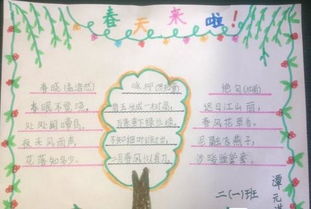 春天来啦！
春晓（孟浩然）
春眠不觉晓，
处处闻啼鸟。
夜来风雨声，
花落知多少。
咏柳
碧玉妆成一树高，
万条垂下绿丝绦。
不知细叶谁裁出，
二月春风似剪刀。
绝句（杜甫）
迟日江山丽，
春风花草香。
泥融飞燕子，
沙暖睡鸳鸯。
二（一）班
谭元